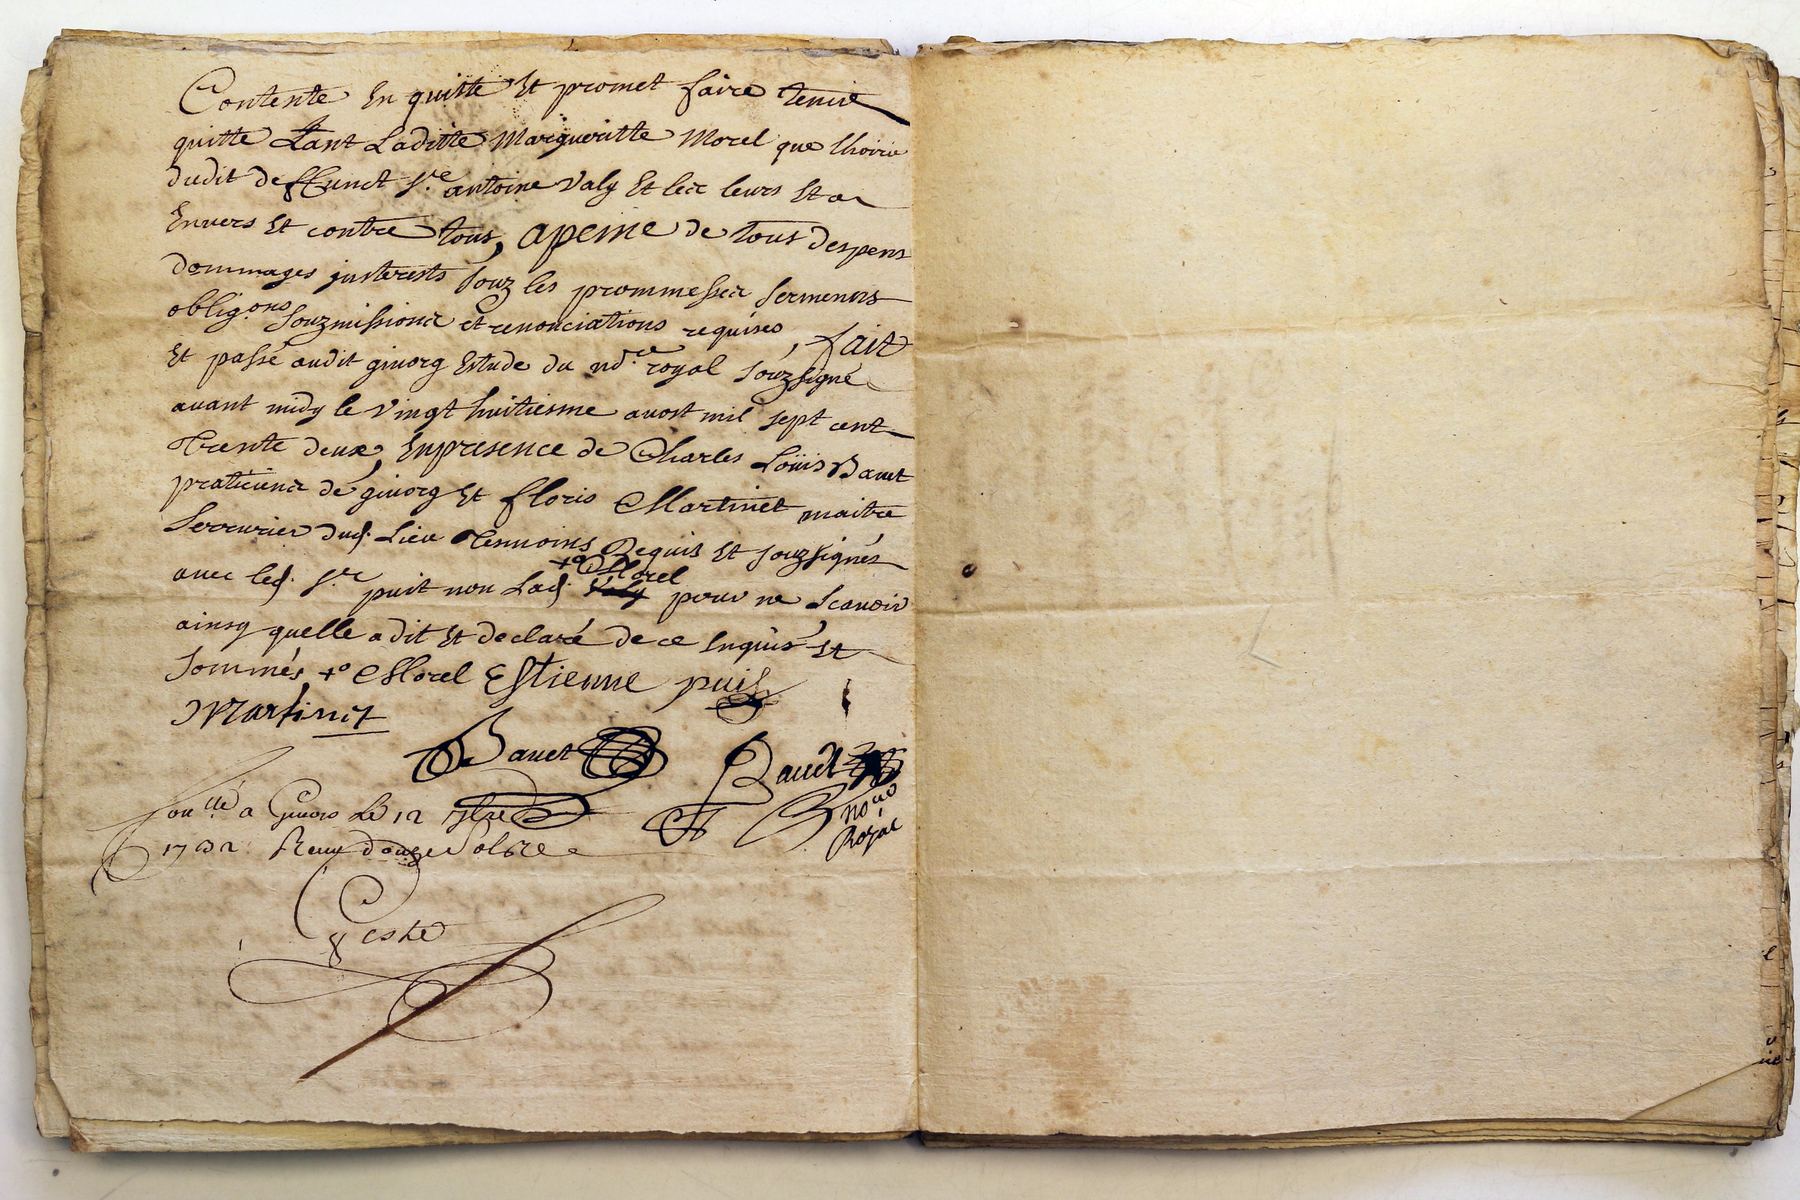 Contente En quitte Et promet faire tenir
quitte tant Laditte Margueritte Morel que lhoirie
dudit deffunct Sre. antoine Valy Et les leurs Et a
Envers Et contre tous, apeine de tous despens
dommages jnterests souz les prommesses sermens
obligons. souzmissions et renonciations requises, fait
Et passé audit givors Estude du ndre. royal souzsigné
avant midy le vingt huitiesme aoust mil sept cent
Trente deux, En presence de Charles Loüis Bauet
praticien de givors Et floris Martinet maitre
Serrurier dud. Lieu Temoins Requis Et souzsignés
avec led. Sr. puit non Lad. +o Morel pour ne scavoir
ainsy quelle a dit Et declaré de ce Enquis Et
sommés +o Morel Estienne puit
Martinet
Bauet Bauet
nore
Royal
Conllé a Givors Le 12 7bre
1732 Reçu douze sols